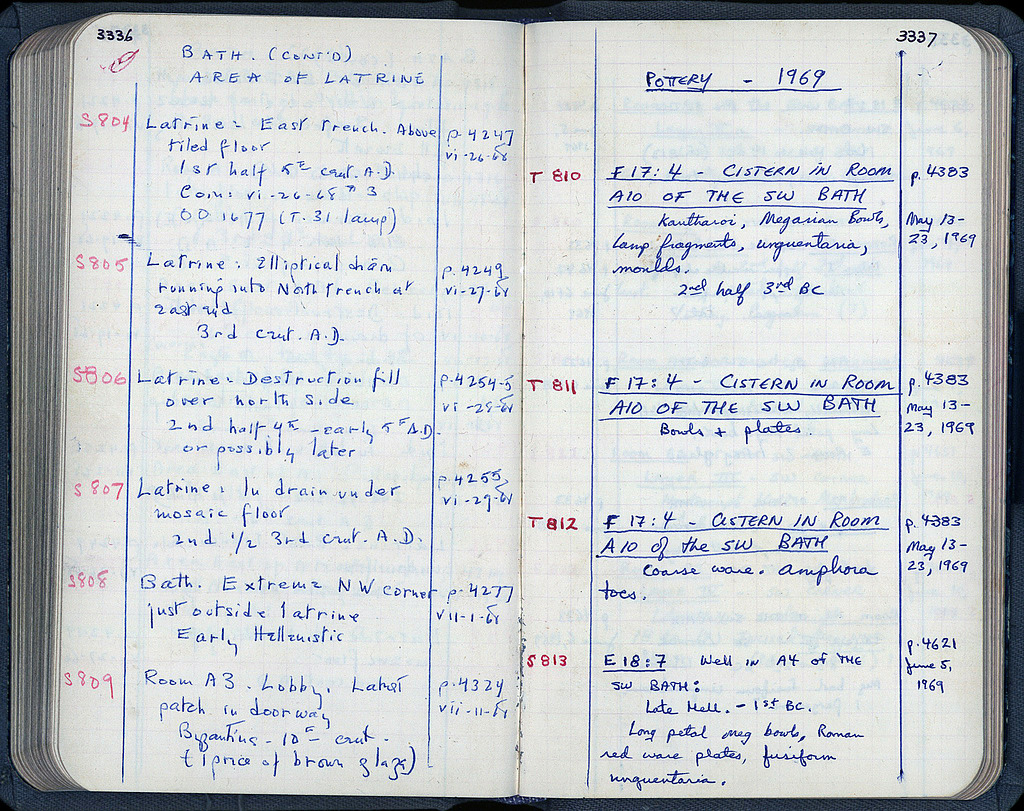 3336
BATH. (CONT'D)
AREA OF LATRINE
S804 Latrine: East trench. Above p. 4247
tiled floor vi-26-68
1st half 5th cent. A.D.
Coin: vi-26-68 # 3
OO 1677 (T. 31 lamp)
S805 Latrine: Elliptical drain p. 4249
running into North trench at vi-27-68
east end
3rd cent. A.D.
S806 Latrine: Destruction fill p. 4254-5
over north side vi-28-68
2nd half 4th - early 5th A.D.
or possibly later
S807 Latrine: In drain under p. 4255,
mosaic floor vi-29-68
2nd 1/2 3rd cent. A.D.
S808 Bath. Extreme NW corner p. 4277
just outside latrine vii-1-68
Early Hellenistic
S809 Room A3. Lobby. Latest p. 4324
patch in doorway vii-11-68
Byzantine - 10th cent.
(1 piece of brown glaze)
3337
POTTERY - 1969
T 810 F 17:4 - CISTERN IN ROOM p. 4383
A10 OF THE SW BATH
Kantharoi, Megarian Bowls, May 13-
lamp fragments, unguentaria, 23, 1969
moulds.
2nd half 3rd BC
T 811 F 17:4 - CISTERN IN ROOM p. 4383
A10 OF THE SW BATH May 13-
Bowls + plates. 23, 1969
T 812 F 17:4 - CISTERN IN ROOM p. 4383
A10 of the SW BATH May 13-
Coarse ware. amphora 23, 1969
toes.
p. 4621
S 813 E 18:7 Well in A4 of THE June 5,
SW BATH: 1969
Late Hell. - 1st BC.
Long petal meg bowls, Roman
red ware plates, fusiform
unguentaria.